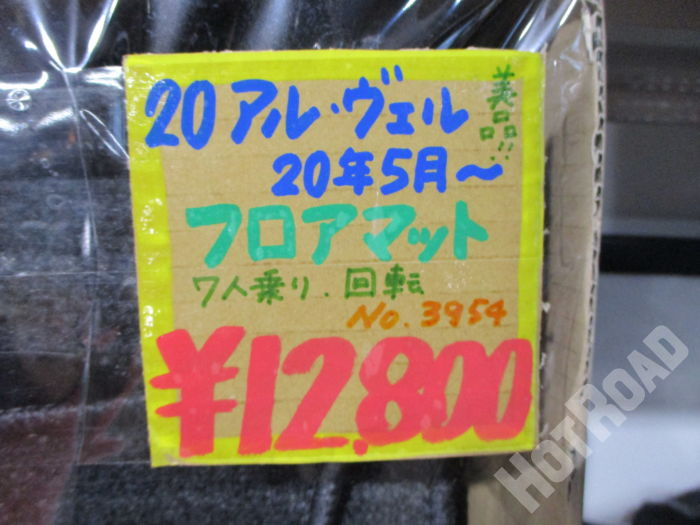 20アル・ヴェル
美品!!
20年5月～
フロアマット
7人乗り.回転
No.3954
¥12,800
HOTROAD